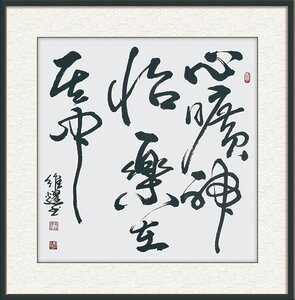 心曠神
怡樂在
其中
維躍書